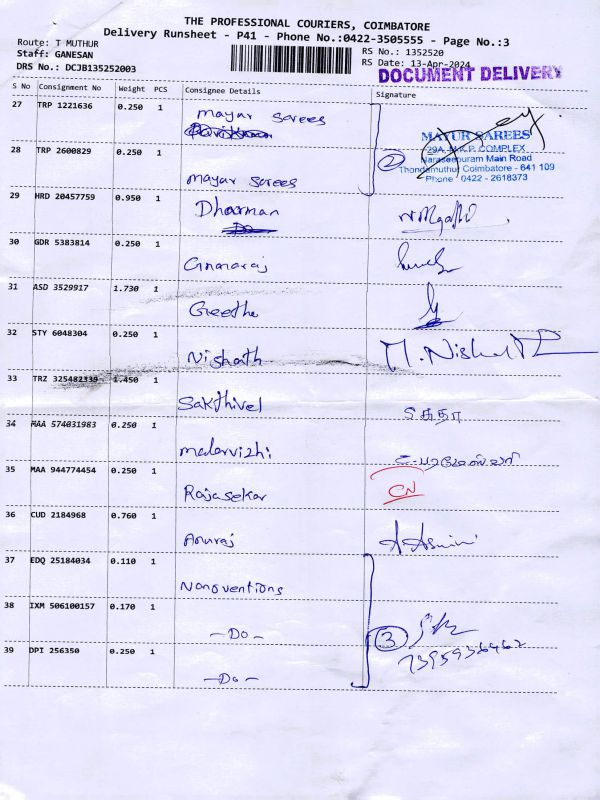 THE PROFESSIONAL COURIERS, COIMBATORE
Delivery Runsheet - P41 - Phone No.:0422-3505555 - Page No.:3
Route: T MUTHUR
Staff: GANESAN
DRS No.: DCJB135252003
RS No.: 1352520
RS Date: 13-Apr-2024
DOCUMENT DELIVERY
S No Consignment No Weight PCS Consignee Details Signature
27 TRP 1221636 0.250 1 Mayur Sarees
MAYUR SAREES
29A, M.K.P. COMPLEX
Naraseepuram Main Road
Thondamuthur Coimbatore - 641 109
Phone : 0422 - 2618373
28 TRP 2600829 0.250 1 Mayur Sarees
2
29 HRD 20457759 0.950 1 Dharman
30 GDR 5383814 0.250 1 Gnanaraj
31 ASD 3529917 1.730 1 Geetha
32 STY 6048304 0.250 1 Nishath M. Nisha
33 TRZ 325482339 1.450 1 Sakthivel சுதா
34 MAA 574031983 0.250 1 malarvizhi
35 MAA 944774454 0.250 1 Rajasekar CN
36 CUD 2184968 0.760 1 Anuraj
37 EDQ 25184034 0.110 1 Nonoventions
38 IXM 506100157 0.170 1 - Do -
3
39 DPI 256350 0.250 1 - Do -